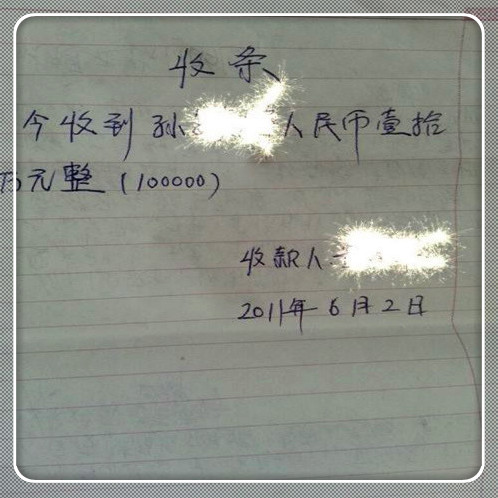 收条
今收到孙 人民币壹拾
万元整（100000）
收款人
2011年6月2日